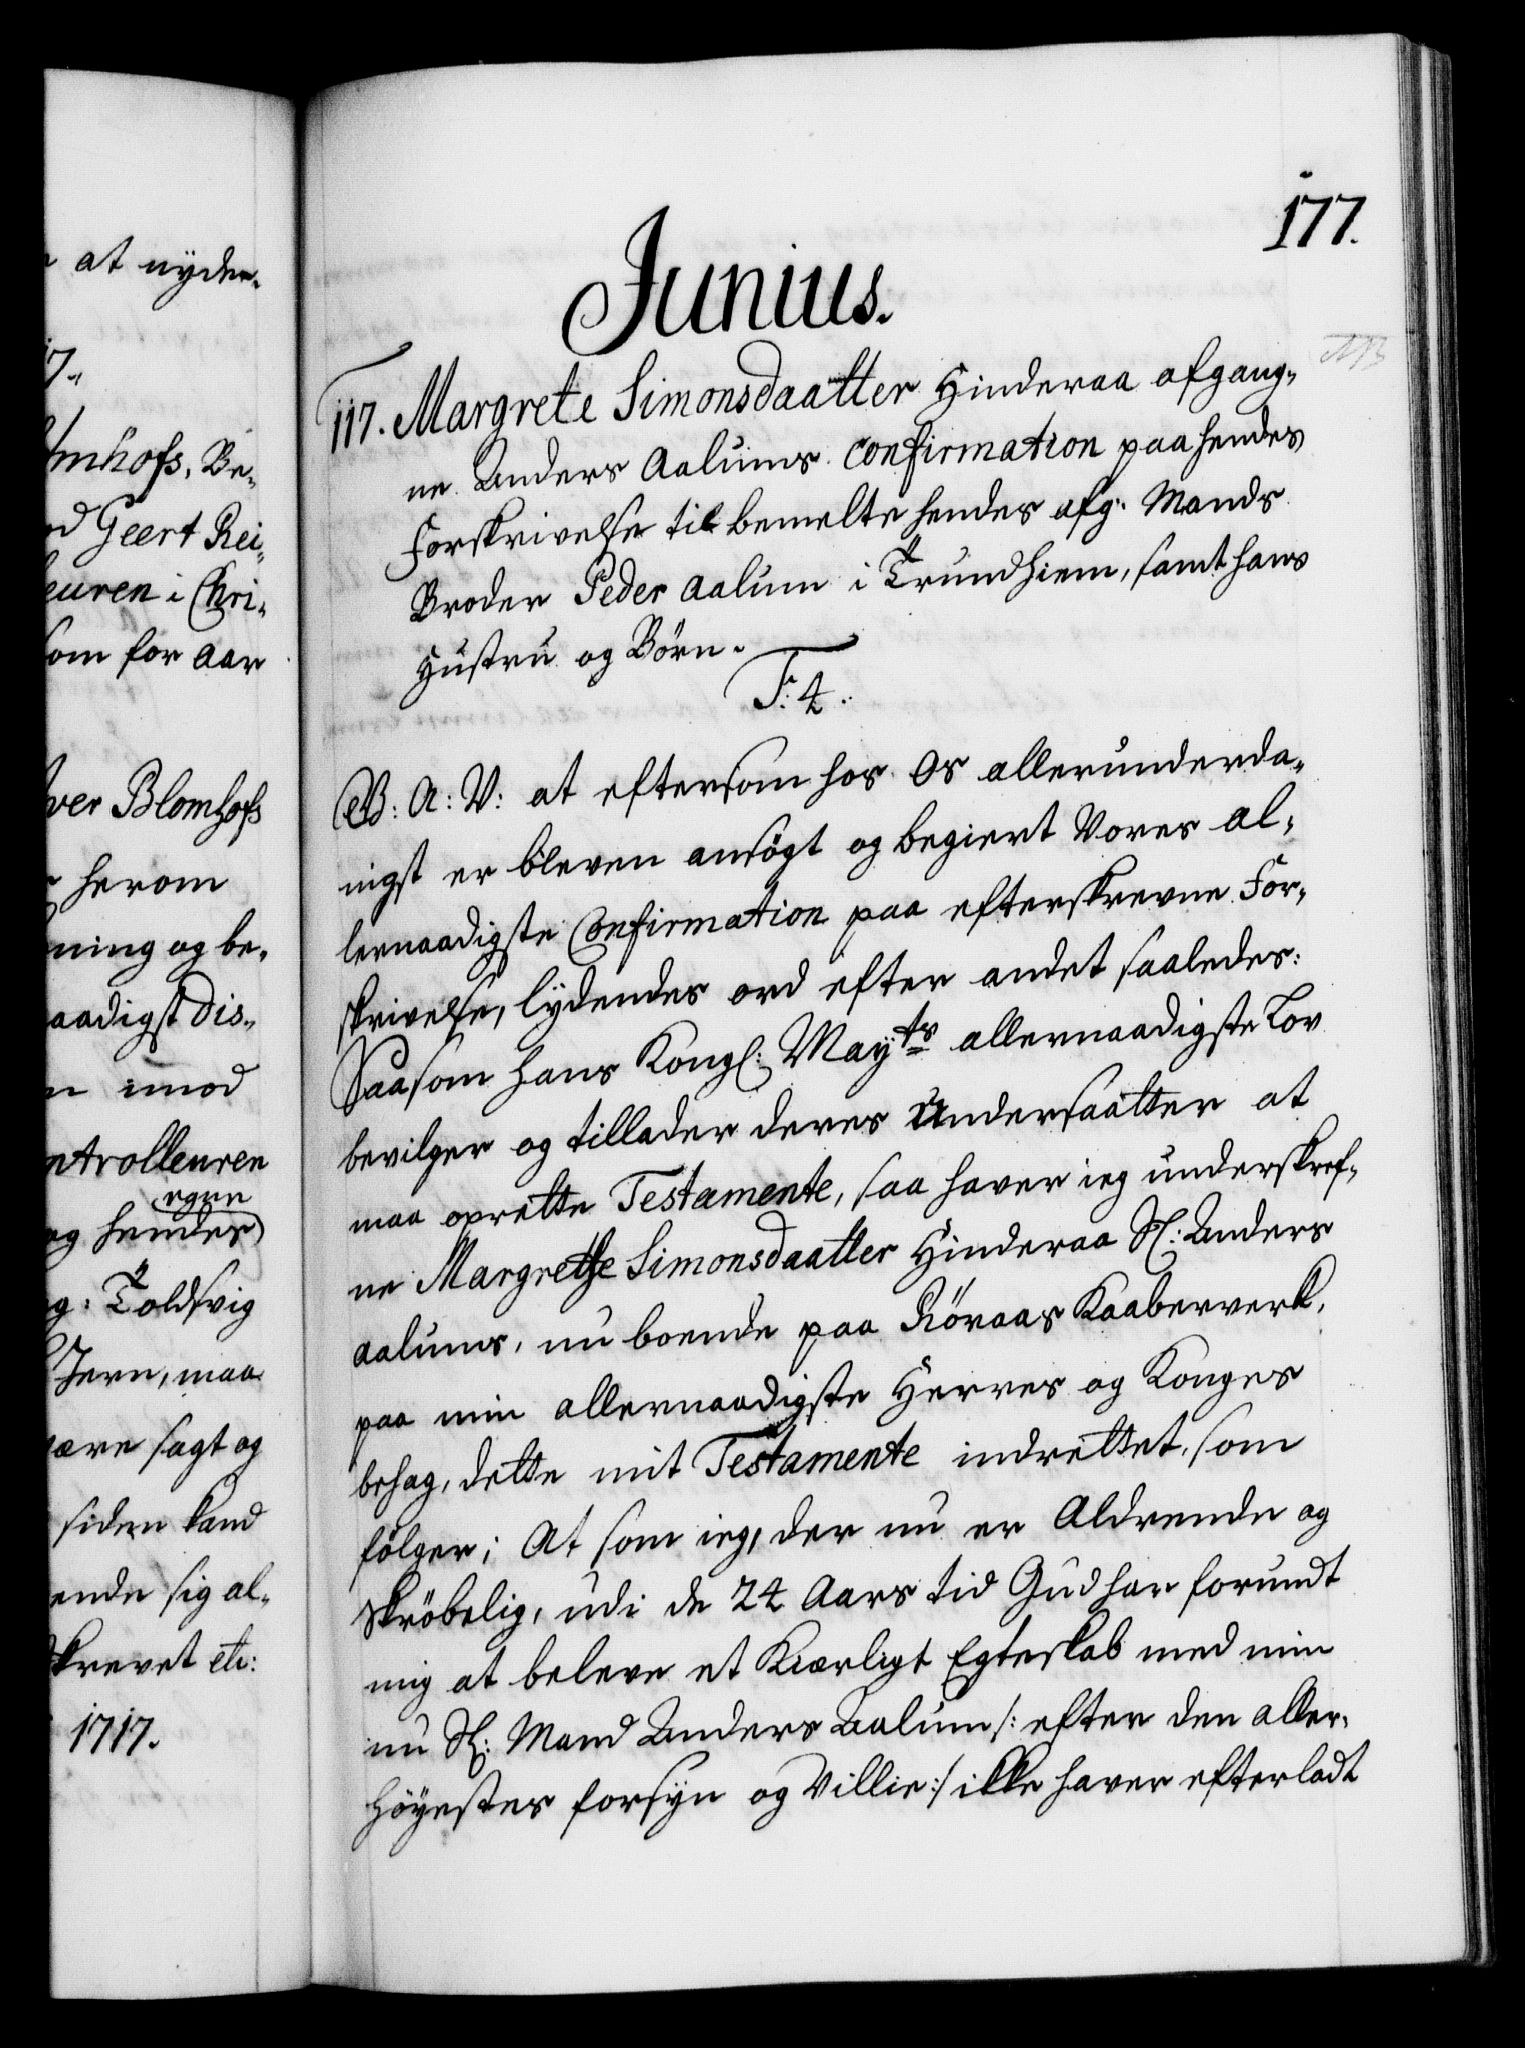 at nyde.
7.
mhofs, Be-
d Geert Rei-
euren i Chri-
som for Aar
ver Blomhofs
herom
ning og be-
aadigst dis-
imod
ntrolleuren
egne
og hendes
g: Toldsvig
Jern, maa
være sagt og
siden kand
ende sig al-
skrevet etc:
1717.
177.
Junius.
NB
117. Margrete Simonsdaatter Hinderaa afgang-
ne Anders Aalums Confirmation paa hendes
Forskrivelse til bemelte hendes afg: Mands
Broder Peder Aalum i Trundhiem, samt hans
Hustru og Börn.
F: 4.
G: A: V: at eftersom hos Os allerunderda-
nigst er bleven ansögt og begiert Vores al-
lernaadigste Confirmation paa efterskrevne For-
skrivelse, lydendes ord efter andet saaledes:
Saasom Hans Kongl: Mayts allernaadigste Lov
bevilger og tillader deres Undersaatter at
maa oprette Testamente, saa haver ieg underskref-
ne Margrethe Simonsdaatter Hinderaa Sl: Anders
Aalums, nu boende paa Röraas Kaaberverk,
paa min allernaadigste Herres og Konges
behag, dette mit Testamente indrettet, som
fölger; At som ieg, der nu er Aldrende og
Skröbelig, udi de 24 Aars tid Gud har forundt
mig at beleve et Kiærligt Egteskab med min
nu Sl: Mand Anders Aalum /: efter den aller-
Höyestes forsyn og Villie :/ ikke haver efterladt